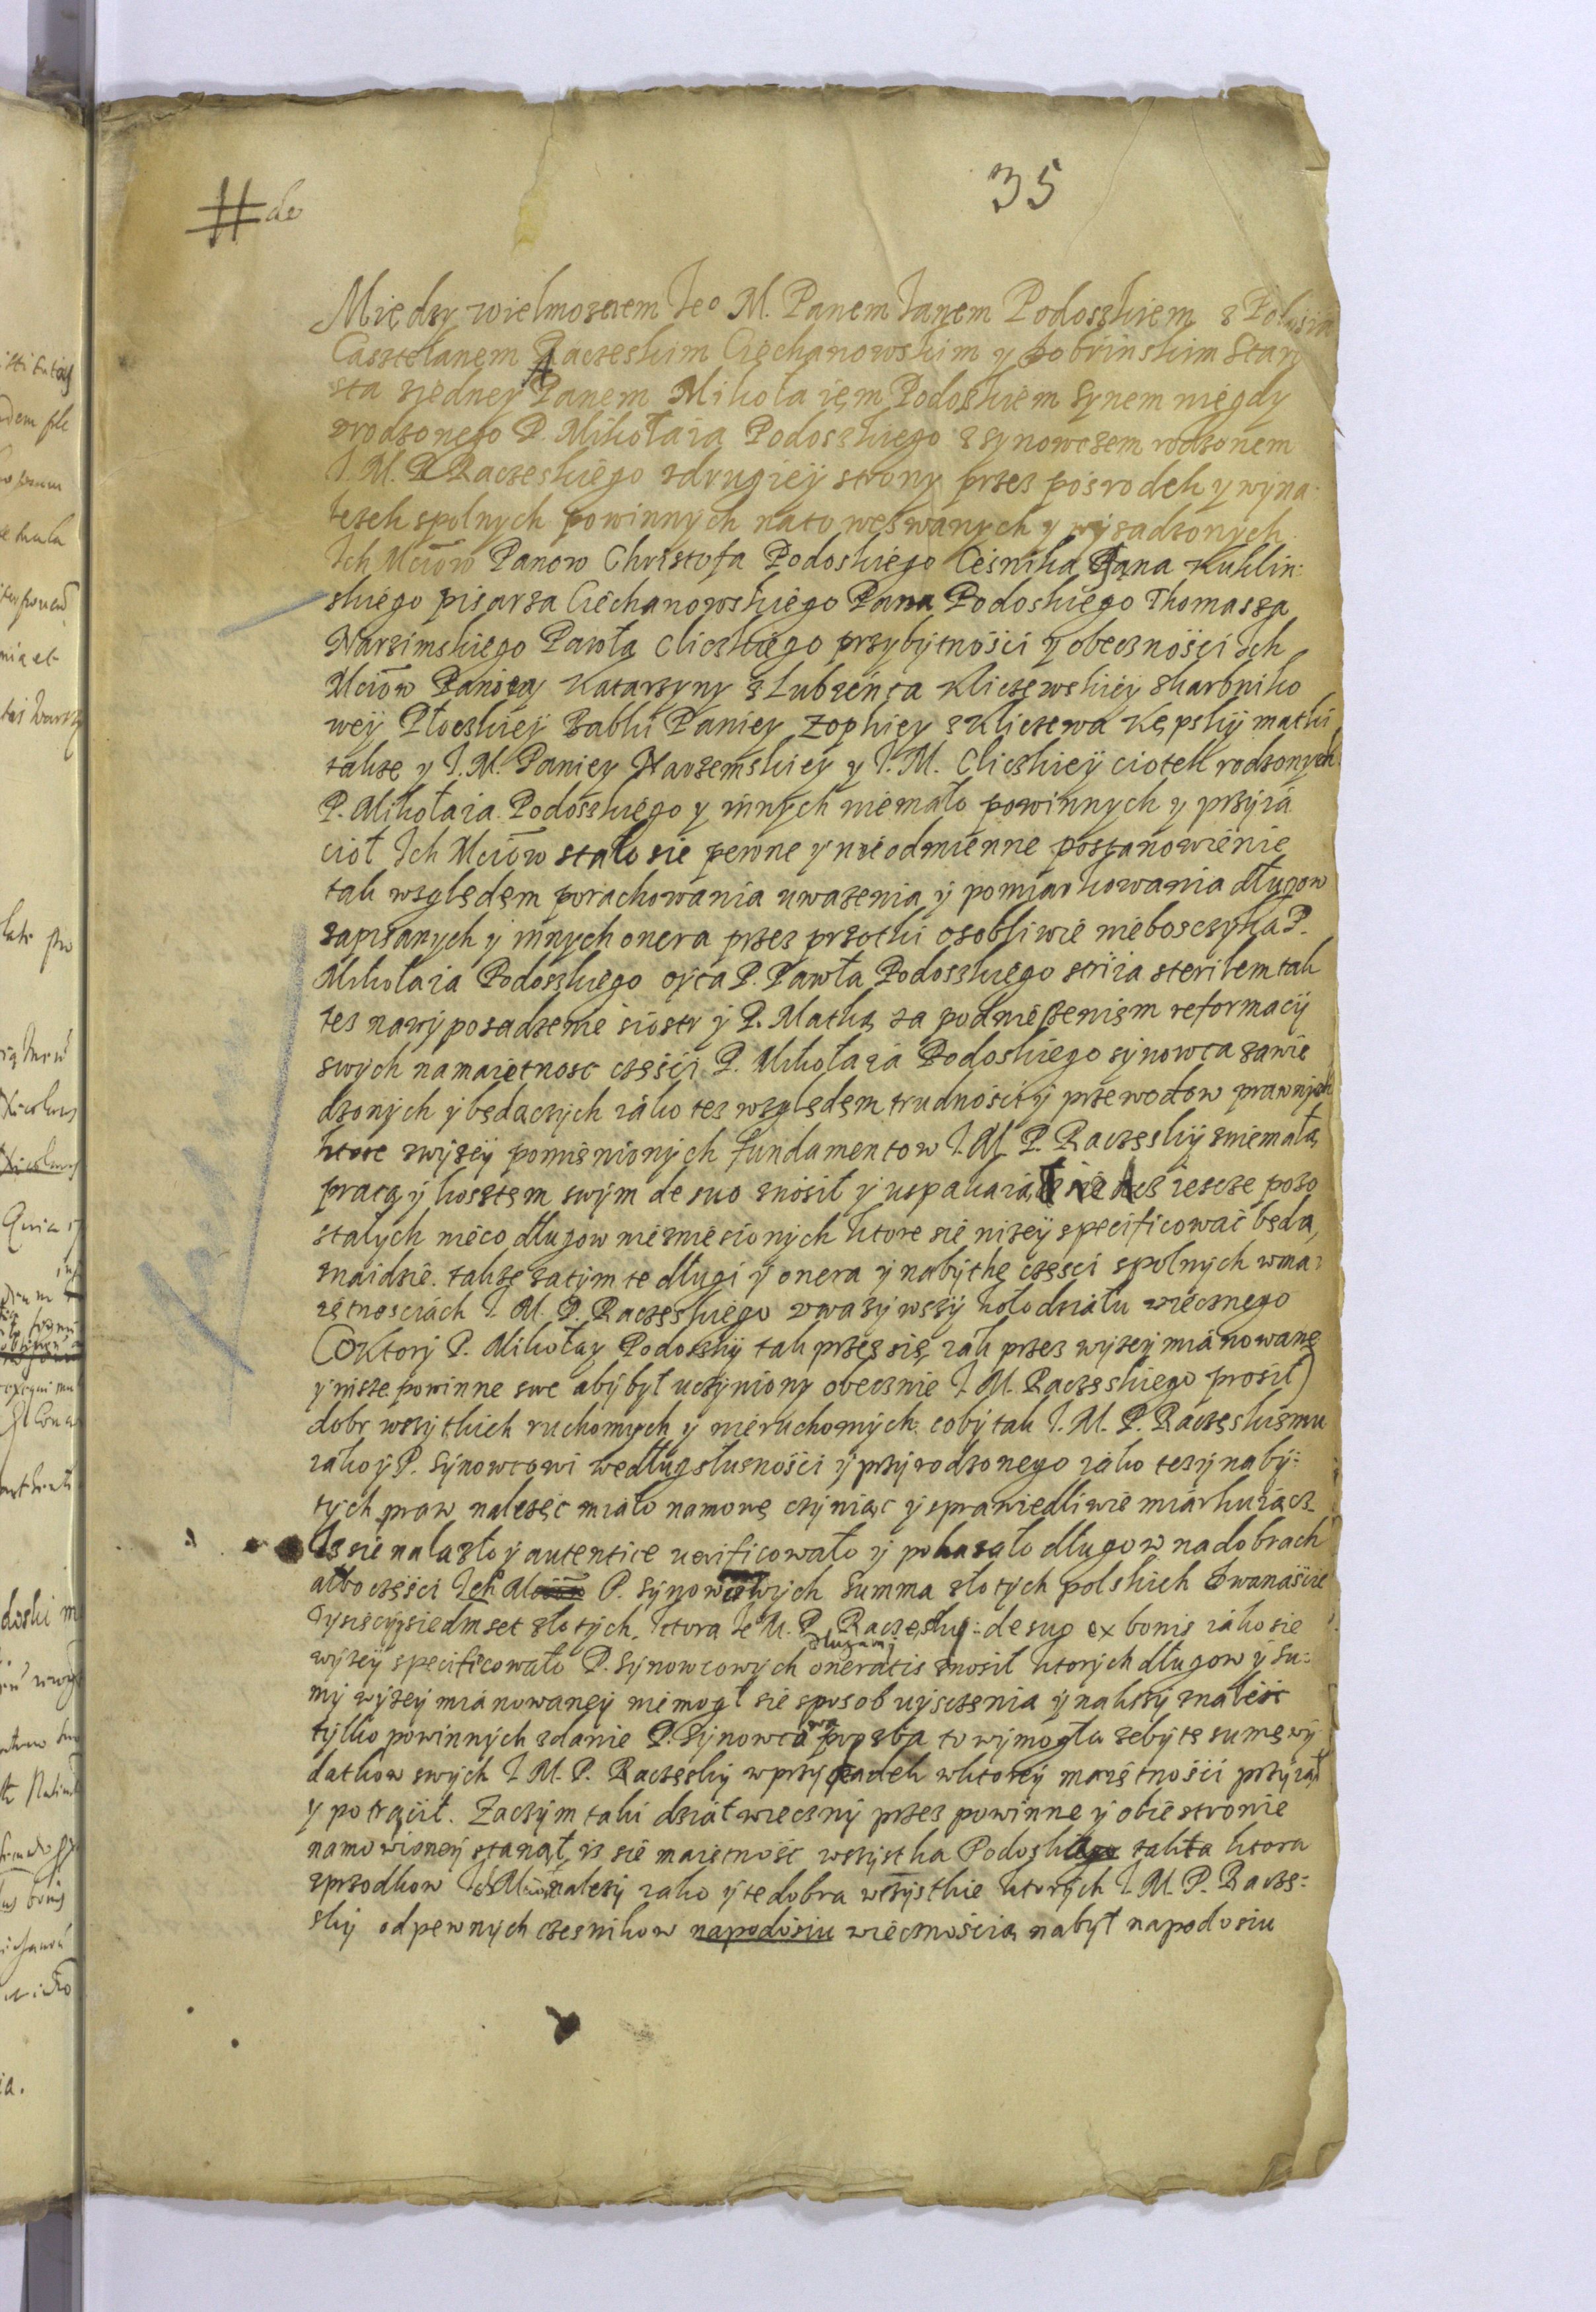 35
# de
Między wielmoznem Jeo M. Panem Janem Podoszkiem z Podosia
Casztelanem Racżeskim Ciechanowskim y Dobrinskim Staro
sta zjedney Panem Mikołaięm Podoskiem synem niegdy
zrodzonego P. Mikołaia Podoszkiego z synowczem rodzonem
J. M. P. Raczeskiego zdrugieÿ strony przez posrodek y wyna
lezek spolnych powinnych nato wezwanych y wysadzonych
Ich Mciow Panow Christofa Podoskiego Cesnika Jana Kuklin:
skiego pisarza Ciechanowskiego Pana Podoskiego Thomassa
Narzimskiego Pawła Cliczkiego przybytności y obecznosci Ich
Mciow Paniey Katarzyny z Lubięńca Kliczewskiey Skarbniko
weÿ Płoczkieÿ Babki Paniey Zophiey z Kliczewa Kępskÿ matki
takze y J. M. Paniey Narzemskiey y J. M. Cliczkieÿ ciotek rodzonych
P. Mikołaia Podoszkiego y innych niemało powinnych y przyia
ciół Ich Mciow stało sie pewne y nieodmienne postanowienie
tak względem porachowania uwazenia y pomiarkowania długow
zapisanych y innych onera przez przotki osobliwie nieboscyka P.
Mikołaia Podoszkiego oyca P. Pawła Podoszkiego striia sterilem tak
tez nawyposadzenie siostr y P. Matką za podniesieniem reformacÿ
swych namaiętnosc częsci P. Mikołaia Podoskiego synowca zawie
dzonych y będaczych iako tez względem trudnosci y przewodow prawnych
ktore zwyzeÿ pomienionych fundamentow J. M. P. Raczeskÿ niemałą
pracą y kosztem swym de suo znosił y uspakaiał iz iescze pozo
stałych nieco długow nieznie sionych ktore sie nizeÿ specificować będą
znaidzie. takze zatym te długi y onera y nabythe częsci spolnych wma
iętnosciach J. M. P. Raczeskiego uwazywszÿ koło działu wiecznego
(Oktory P. Mikołay Podoskÿ tak przez się iak przez wyzey mianowane
y nisze powinne swe aby był uczyniony obecznie J. M. Raczeskiego prosił)
dobr wszytkich ruchomych y nieruchomych. coby tak J. M. P. Raczeskiemu
iako y P. Synowcowi według słusznosci y przyrodzonego iako tezy naby:
tych praw nalezec miało namowę czyniąc y sprawiedliwie miarkuiącz
Iz sie nalazło y autentice verificowało y pokazało długow nadobrach
albo częsci P. Synowcowych Summa złotych polskich Dwanascie
Tysięcy siedmset złotych, ktora Jeo M. P. Raczeskÿ: de suo ex bonis iako sie
długami
wyzeÿ specificowało P. Synowcowych oneratis znosił ktorych długow y Su:
my wyzeÿ mianowaneÿ niemogł sie sposob uysczenia y nakszÿ znaleść
tylko powinnych zdanie P. Synowcowa prozba to wymogła zeby te sume wy
datkow swych J. M. P. Raczeskÿ wprzypadek wktoreÿ maiętności przyiął
y potrącił. Zaczym taki dział wieczny przez powinne y obie stronie
namowioneÿ stanął, iz sie maiętność wszystka Podoskiego takta ktora
zprzodkow nalezÿ iako y te dobra wszystkie ktorych J. M. P. Racze:
skÿ odpewnych czesnikow napodosiu wiecznością nabył napodosiu